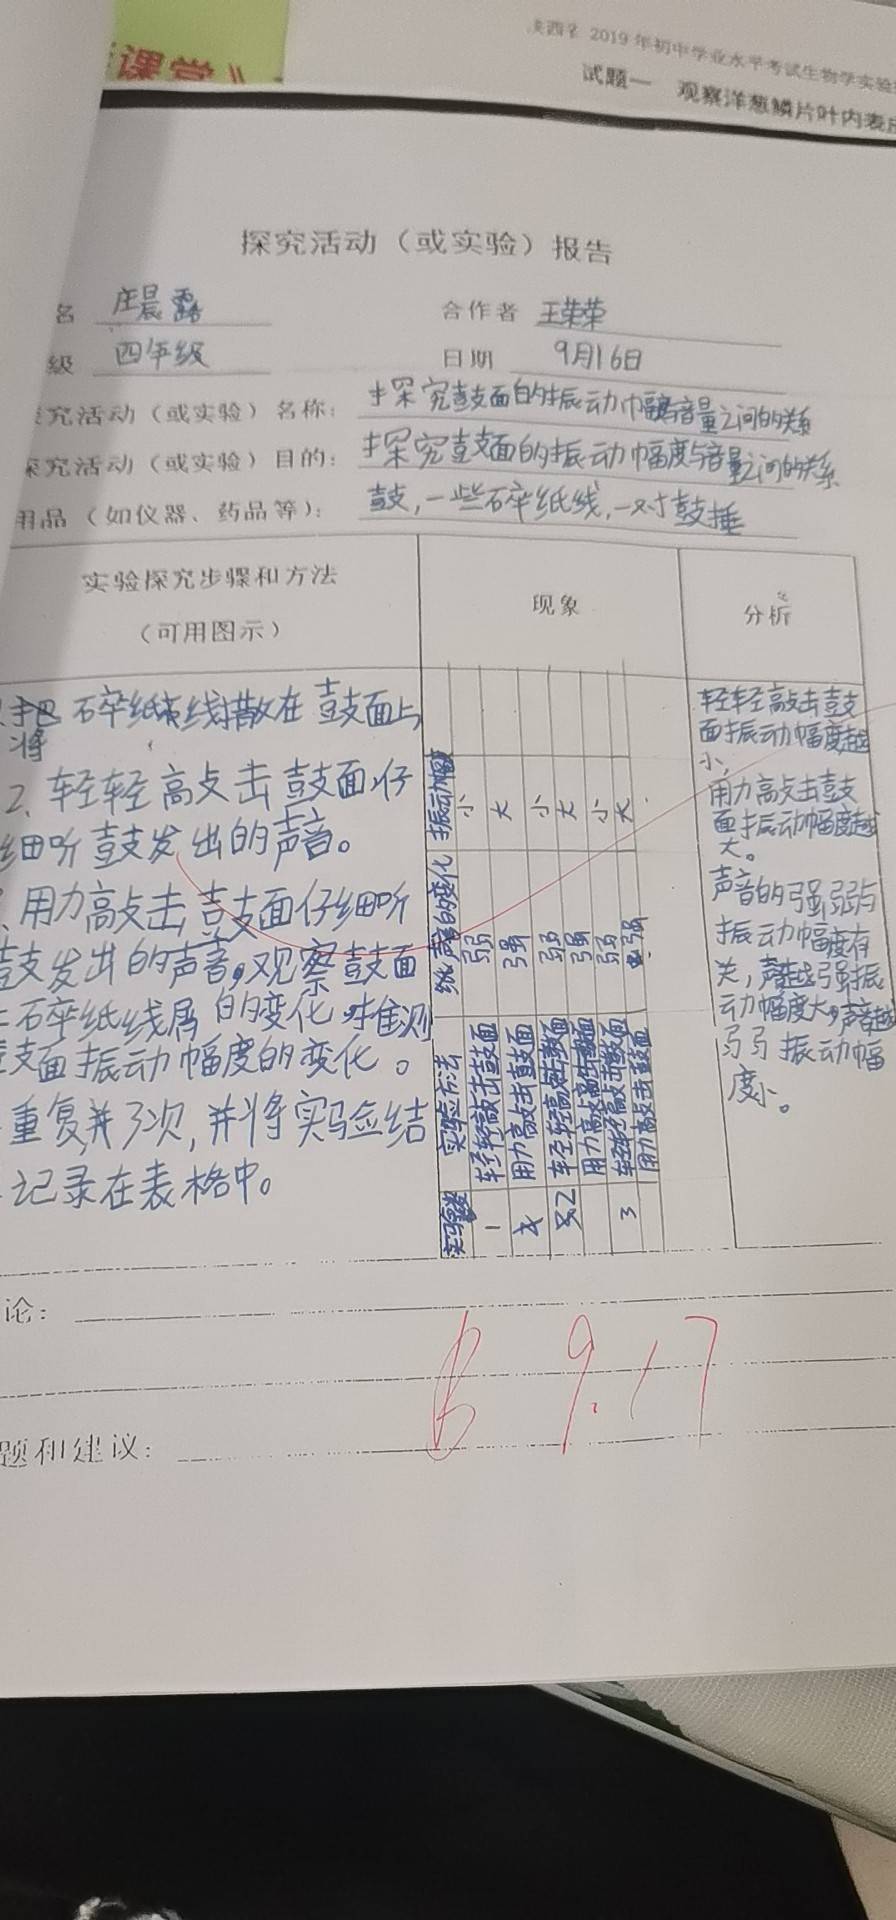 课堂》
2019年初中学业水平考试生物学实验
试题一 观察洋葱鳞片叶内表
探究活动（或实验）报告
名 庄晨露
合作者 王荣荣
级 四年级
日期 9月16日
究活动（或实验）名称：探究鼓面的振动幅与音量之间的关系
探究活动（或实验）目的：探究鼓面的振动幅度与音量之间的关系
用品（如仪器、药品等）：鼓，一些碎纸线，一对鼓捶
实验探究步骤和方法
（可用图示）
现象
分析
将碎纸线撒在鼓面上
2、轻轻高攴击鼓面仔
细听鼓发出的声音。
、用力高攴击鼓面仔细听
鼓发出的声音，观察鼓面
上碎纸线屑的变化，推测
鼓面振动幅度的变化。
重复3次，并将实验结
记录在表格中。
实验数 实验方法 声音的变化 振动幅度
1 轻轻敲击鼓面 弱 小
用力高攴击鼓面 强 大
2 轻轻高攴击鼓面 弱 小
用力高攴击鼓面 强 大
3 轻轻敲击鼓面 弱 小
用力高攴击鼓面 强 大
轻轻敲击鼓
面振动幅度越
小，
用力高攴击鼓
面振动幅度越
大。
声音的强弱与
振动幅度有
关，声越强振
动幅度大，声音越
弱振动幅
度小。
论：
B 9.17
题和建议：